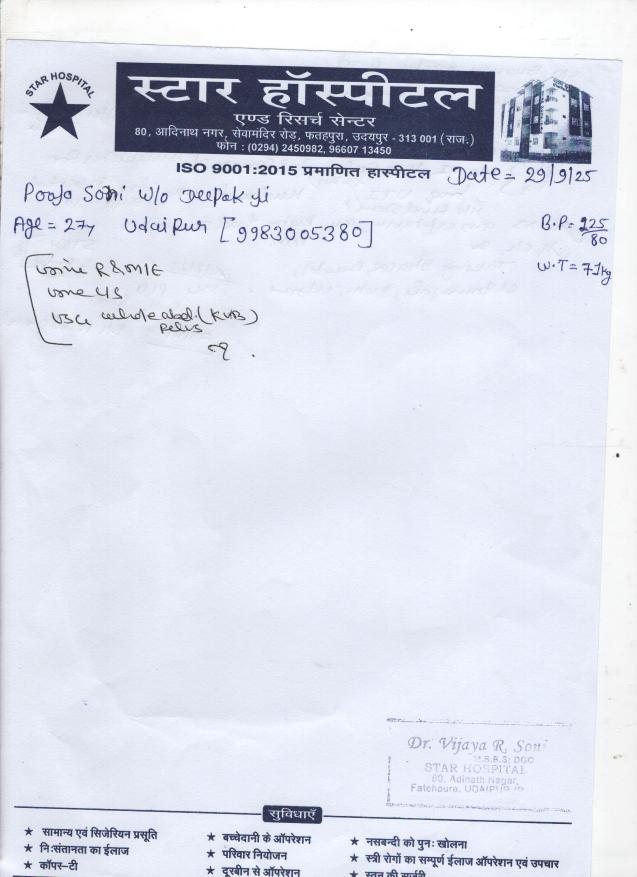 STAR HOSPITAL
स्टार हॉस्पीटल
एण्ड रिसर्च सेन्टर
80, आदिनाथ नगर, सेवामंदिर रोड़, फतहपुरा, उदयपुर - 313 001 (राज.)
फोन : (0294) 2450982, 96607 13450
ISO 9001:2015 प्रमाणित हास्पीटल
Date = 29/9/25
Pooja Soni W/o Deepak Ji
Age = 27y Udaipur [9983005380]
B.P = 125/80
W.T = 71kg
urine R & M/E
urine C/S
USG whole abd. (KUB)
pelvis
Dr. Vijaya R. Soni
M.B.B.S; DGO
STAR HOSPITAL
80, Adinath Nagar,
Fatehpura, UDAIPUR
सुविधाएँ
★ सामान्य एवं सिजेरियन प्रसूति ★ बच्चेदानी के ऑपरेशन ★ नसबन्दी को पुनः खोलना
★ निःसंतानता का ईलाज ★ परिवार नियोजन ★ स्त्री रोगों का सम्पूर्ण ईलाज ऑपरेशन एवं उपचार
★ कॉपर-टी ★ दूरबीन से ऑपरेशन ★ स्तन की सर्जरी